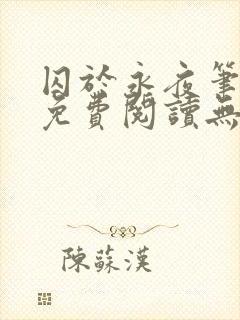 囚於永夜筆
免費閱讀無
陳蘇漢